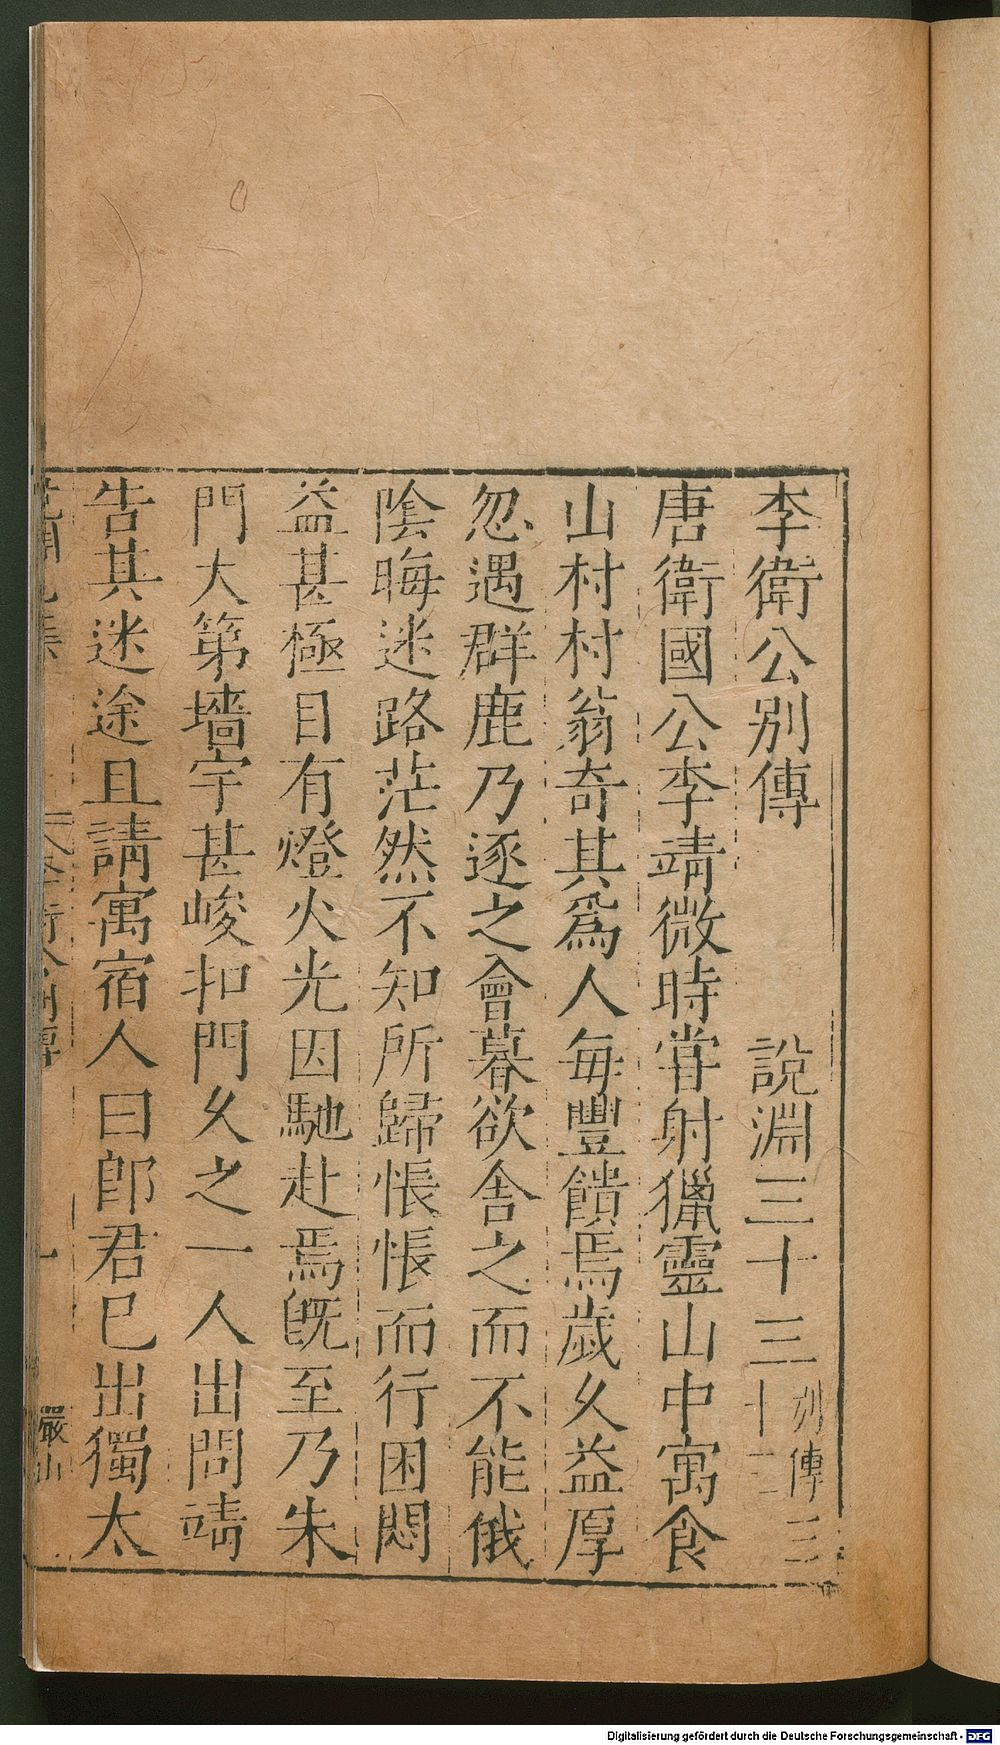 李衛公別傳 說淵三十三 別傳三十三
唐衛國公李靖微時甞射獵靈山中寓食
山村村翁奇其爲人每豐饋焉歲久益厚
忽遇群鹿乃逐之會暮欲舍之而不能俄
陰晦迷路茫然不知所歸悵悵而行困悶
益甚極目有燈火光因馳赴焉旣至乃朱
門大第墻宇甚峻扣門久之一人出問靖
告其迷途且請寓宿人曰郎君已出獨太
李衛公別傳 一 嚴山
Digitalisierung gefördert durch die Deutsche Forschungsgemeinschaft - DFG